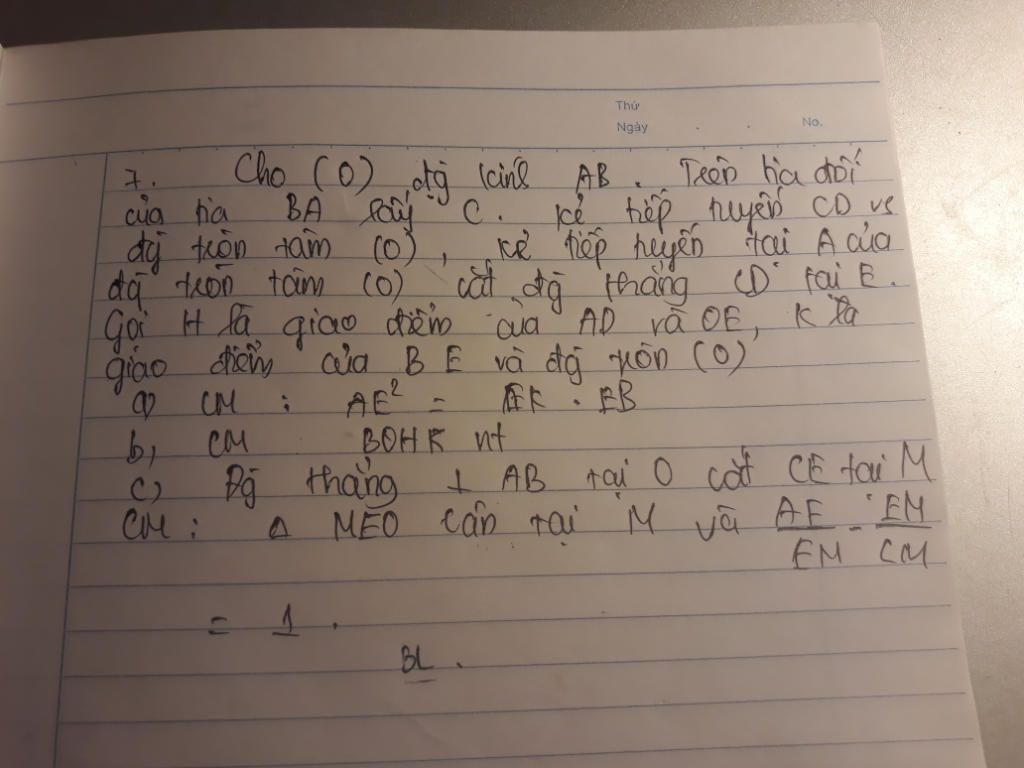 Thứ
Ngày . . No.
7. Cho (O) đg kính AB. Trên tia đối
của tia BA lấy C. kẻ tiếp tuyến CD vs
đg tròn tâm (O), kẻ tiếp tuyến tại A của
đg tròn tâm (O) cắt đg thẳng CD tại E.
Gọi H là giao điểm của AD và OE, K là
giao điểm của BE và đg tròn (O)
a) CM : AE² = EK . EB
b, CM BOHK nt
c) Đg thẳng ⊥ AB tại O cắt CE tại M
CM: Δ MEO cân tại M và AE/EM - EM/CM
= 1.
BL.